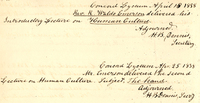 Concord Lyceum April 18 1838
Rev. R. Waldo Emerson delivered his
Introductory Lecture on "Human Culture.
Adjourned
H.B. Dennis,
Secretary
Concord Lyceum Apr 25 1838
Mr. Emerson delivered the second
Lecture on Human Culture. Subject, The Hand.
Adjourned,
H B Dennis, Secy